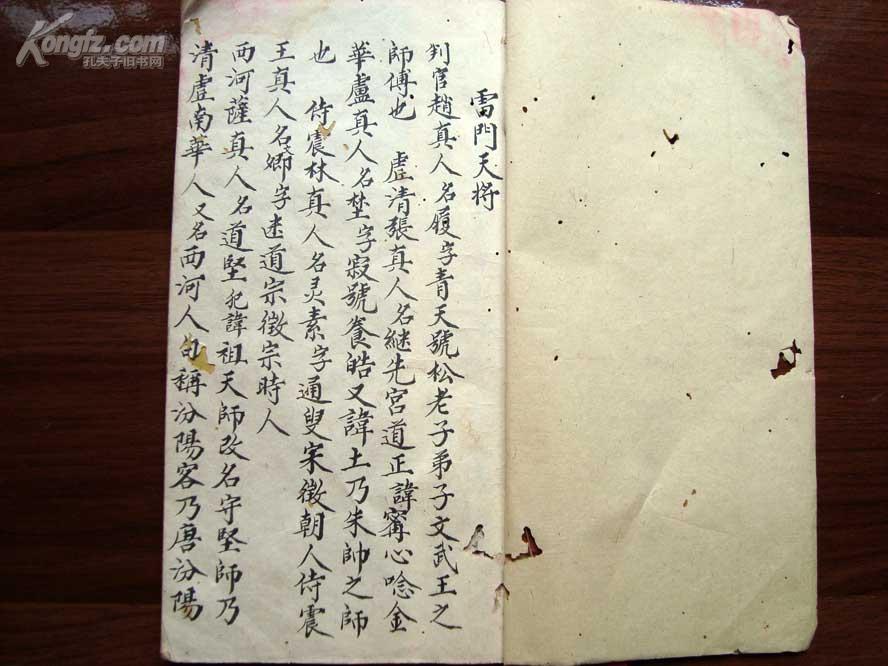 雷門天将
判官趙真人名履字青天號松老子弟子文武王之
師傅也 虛清張真人名継先宮道正諱寗心唸金
華盧真人名埜字寂號養皓又諱土乃朱帥之師
也 侍震林真人名灵素字通叟宋徵朝人侍震
王真人名字迷道宗徵宗時人
西河薩真人名道堅犯諱祖天師改名守堅師乃
清虛南華人又名西河人自稱汾陽客乃唐汾陽
Kongfz.com
孔夫子旧书网